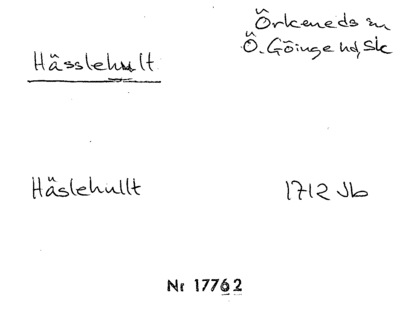 Örkeneds sn
Ö. Göinge hd, Sk
Hässlehult
Häslehullt
1712 Jb
Nr 17762